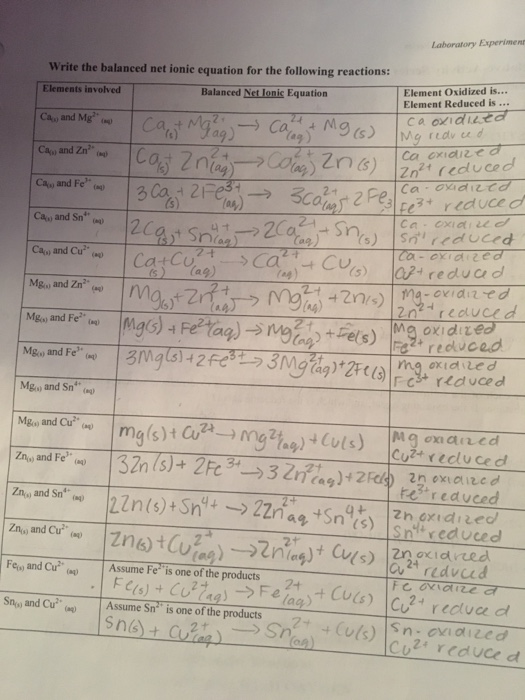 Laboratory Experiment
Write the balanced net ionic equation for the following reactions:
Elements involved Balanced Net Ionic Equation Element Oxidized is...
Element Reduced is ...
Ca(s) and Mg²⁺(aq) Ca(s) + Mg²⁺(aq) → Ca²⁺(aq) + Mg(s) Ca oxidized
Mg reduced
Ca(s) and Zn²⁺(aq) Ca(s) + Zn²⁺(aq) → Ca²⁺(aq) Zn(s) Ca oxidized
Zn²⁺ reduced
Ca(s) and Fe³⁺(aq) 3Ca(s) + 2Fe³⁺(aq) → 3Ca²⁺(aq) + 2Fe(s) Ca - oxidized
Fe³⁺ reduced
Ca(s) and Sn⁴⁺(aq) 2Ca(s) + Sn⁴⁺(aq) → 2Ca²⁺(aq) + Sn(s) Ca - oxidized
Sn⁴⁺ reduced
Ca(s) and Cu²⁺(aq) Ca(s) + Cu²⁺(aq) → Ca²⁺(aq) + Cu(s) Ca - oxidized
Cu²⁺ reduced
Mg(s) and Zn²⁺(aq) Mg(s) + Zn²⁺(aq) → Mg²⁺(aq) + Zn(s) Mg - oxidized
Zn²⁺ reduced
Mg(s) and Fe²⁺(aq) Mg(s) + Fe²⁺(aq) → Mg²⁺(aq) + Fe(s) Mg oxidized
Fe²⁺ reduced
Mg(s) and Fe³⁺(aq) 3Mg(s) + 2Fe³⁺ → 3Mg²⁺(aq) + 2Fe(s) Mg oxidized
Fe³⁺ reduced
Mg(s) and Sn⁴⁺(aq)
Mg(s) and Cu²⁺(aq) Mg(s) + Cu²⁺ → Mg²⁺(aq) + Cu(s) Mg oxidized
Cu²⁺ reduced
Zn(s) and Fe³⁺(aq) 3Zn(s) + 2Fe³⁺ → 3Zn²⁺(aq) + 2Fe(s) Zn oxidized
Fe³⁺ reduced
Zn(s) and Sn⁴⁺(aq) 2Zn(s) + Sn⁴⁺ → 2Zn²⁺aq + Sn⁴⁺(s) Zn oxidized
Sn⁴⁺ reduced
Zn(s) and Cu²⁺(aq) Zn(s) + Cu²⁺(aq) → Zn²⁺(aq) + Cu(s) Zn oxidized
Cu²⁺ reduced
Fe(s) and Cu²⁺(aq) Assume Fe²⁺ is one of the products Fe oxidized
Fe(s) + Cu²⁺(aq) → Fe²⁺(aq) + Cu(s) Cu²⁺ reduced
Sn(s) and Cu²⁺(aq) Assume Sn²⁺ is one of the products Sn - oxidized
Sn(s) + Cu²⁺(aq) → Sn²⁺(aq) + Cu(s) Cu²⁺ reduced